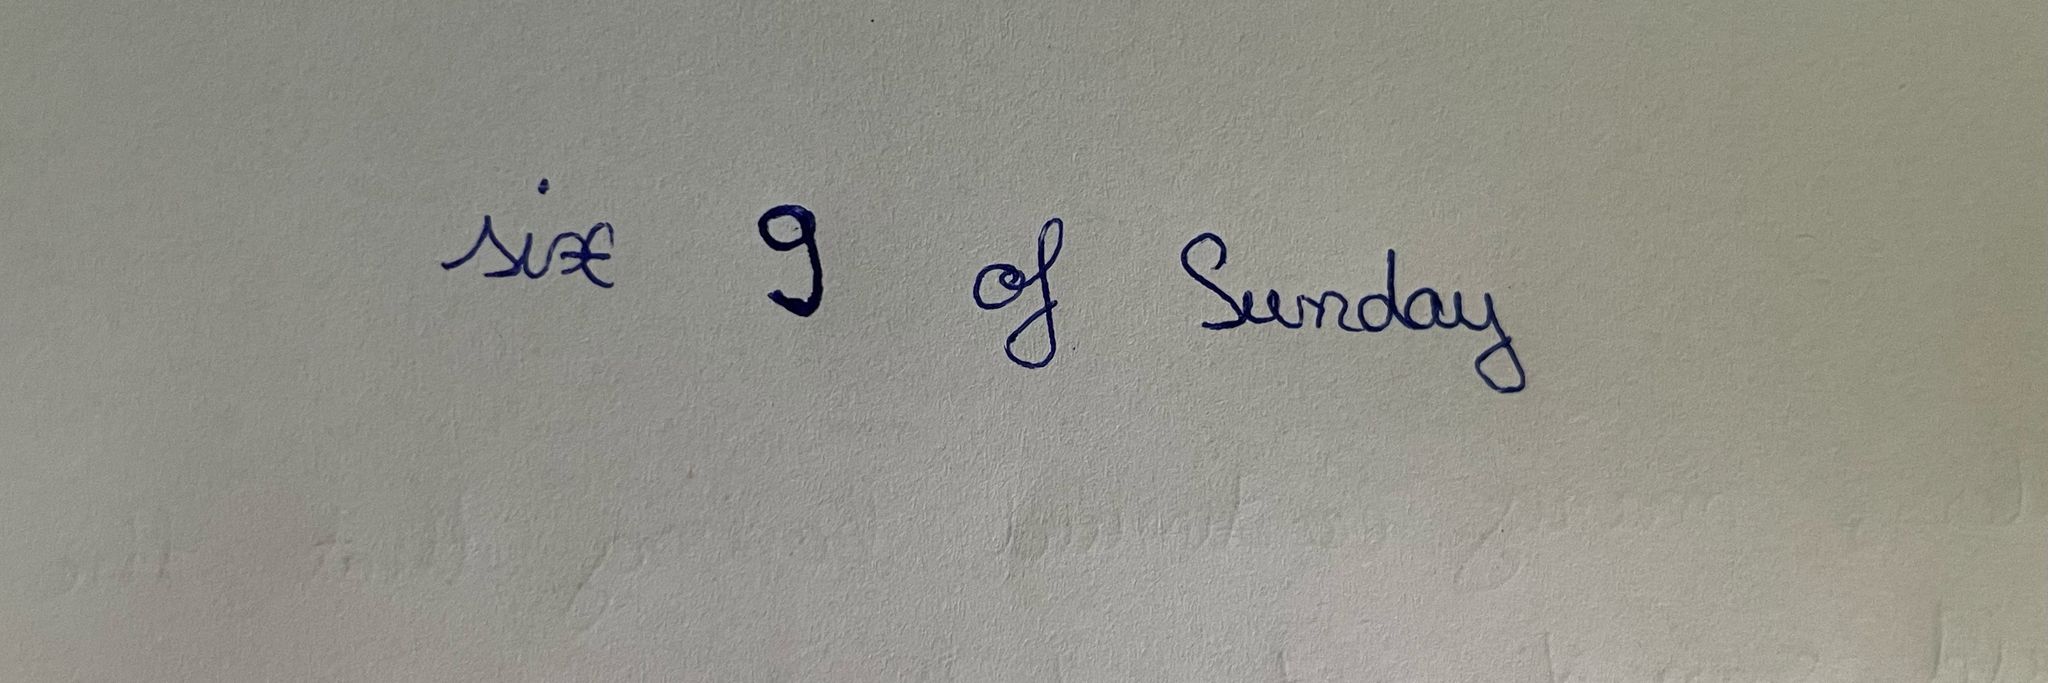 six 9 of Sunday